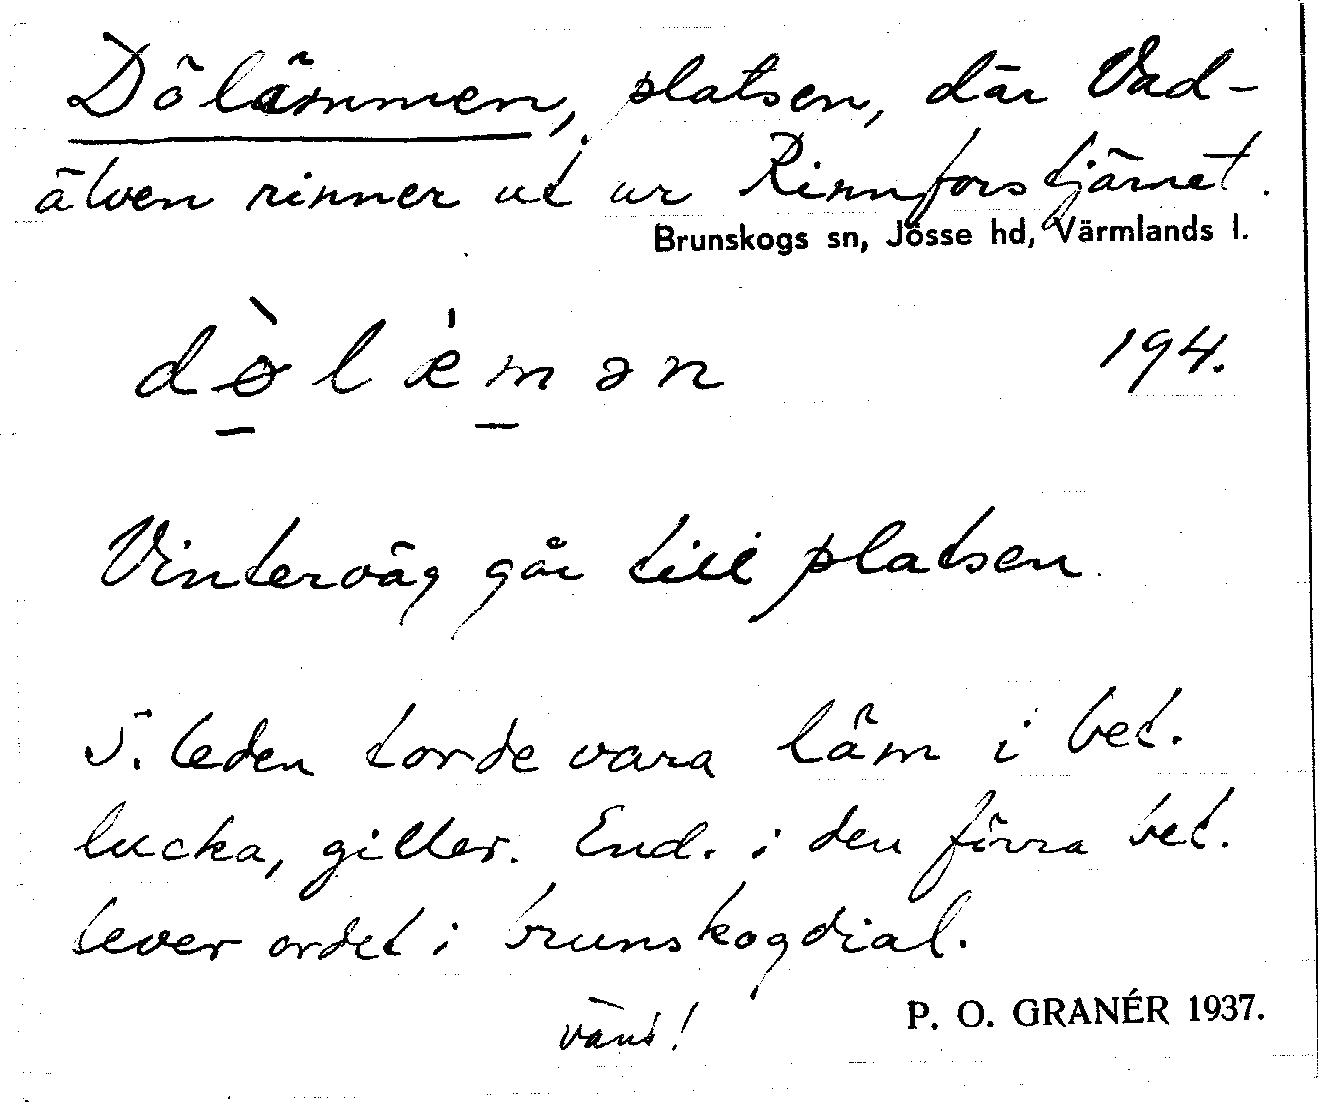 Dölämmen, platsen, där Vad-
älven rinner ut ur Rinnforstjärnet.
Brunskogs sn, Jösse hd, Värmlands l.
dø̀læ̀mən 194.
Vinterväg går till platsen.
S. leden torde vara läm i bet.
lucka, giller. End. i den förra bet.
lever ordet i brunskogdial.
vänd!
P. O. GRANÉR 1937.